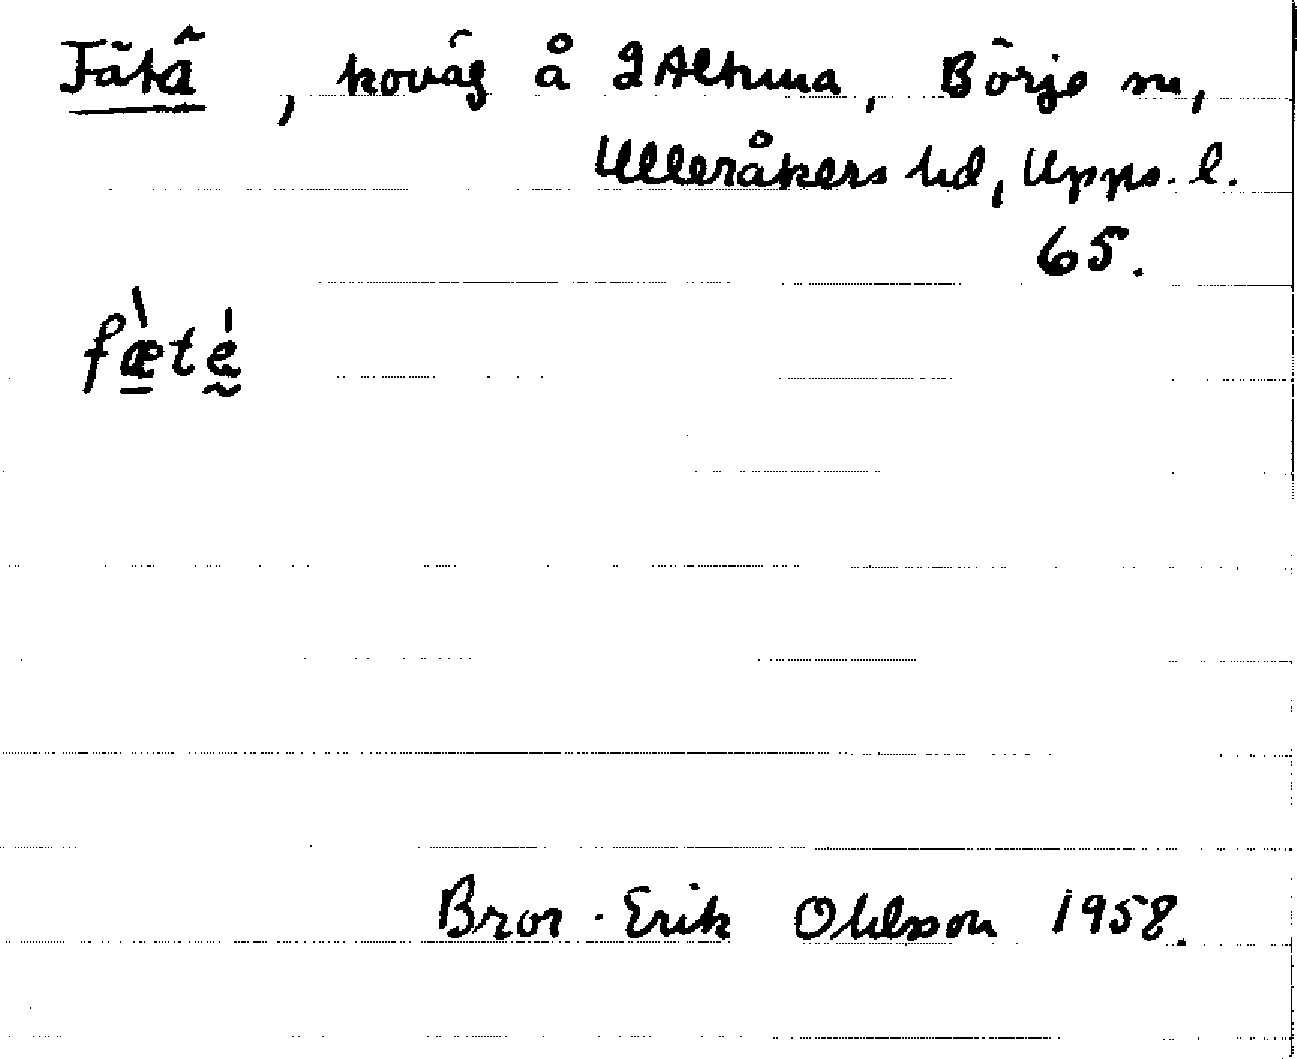 Fätä, koväg å 2 Altuna, Börje sn,
Ulleråkers hd, Upps. l.
65.
fæ̀té
Bror-Erik Ohlsson 1958.